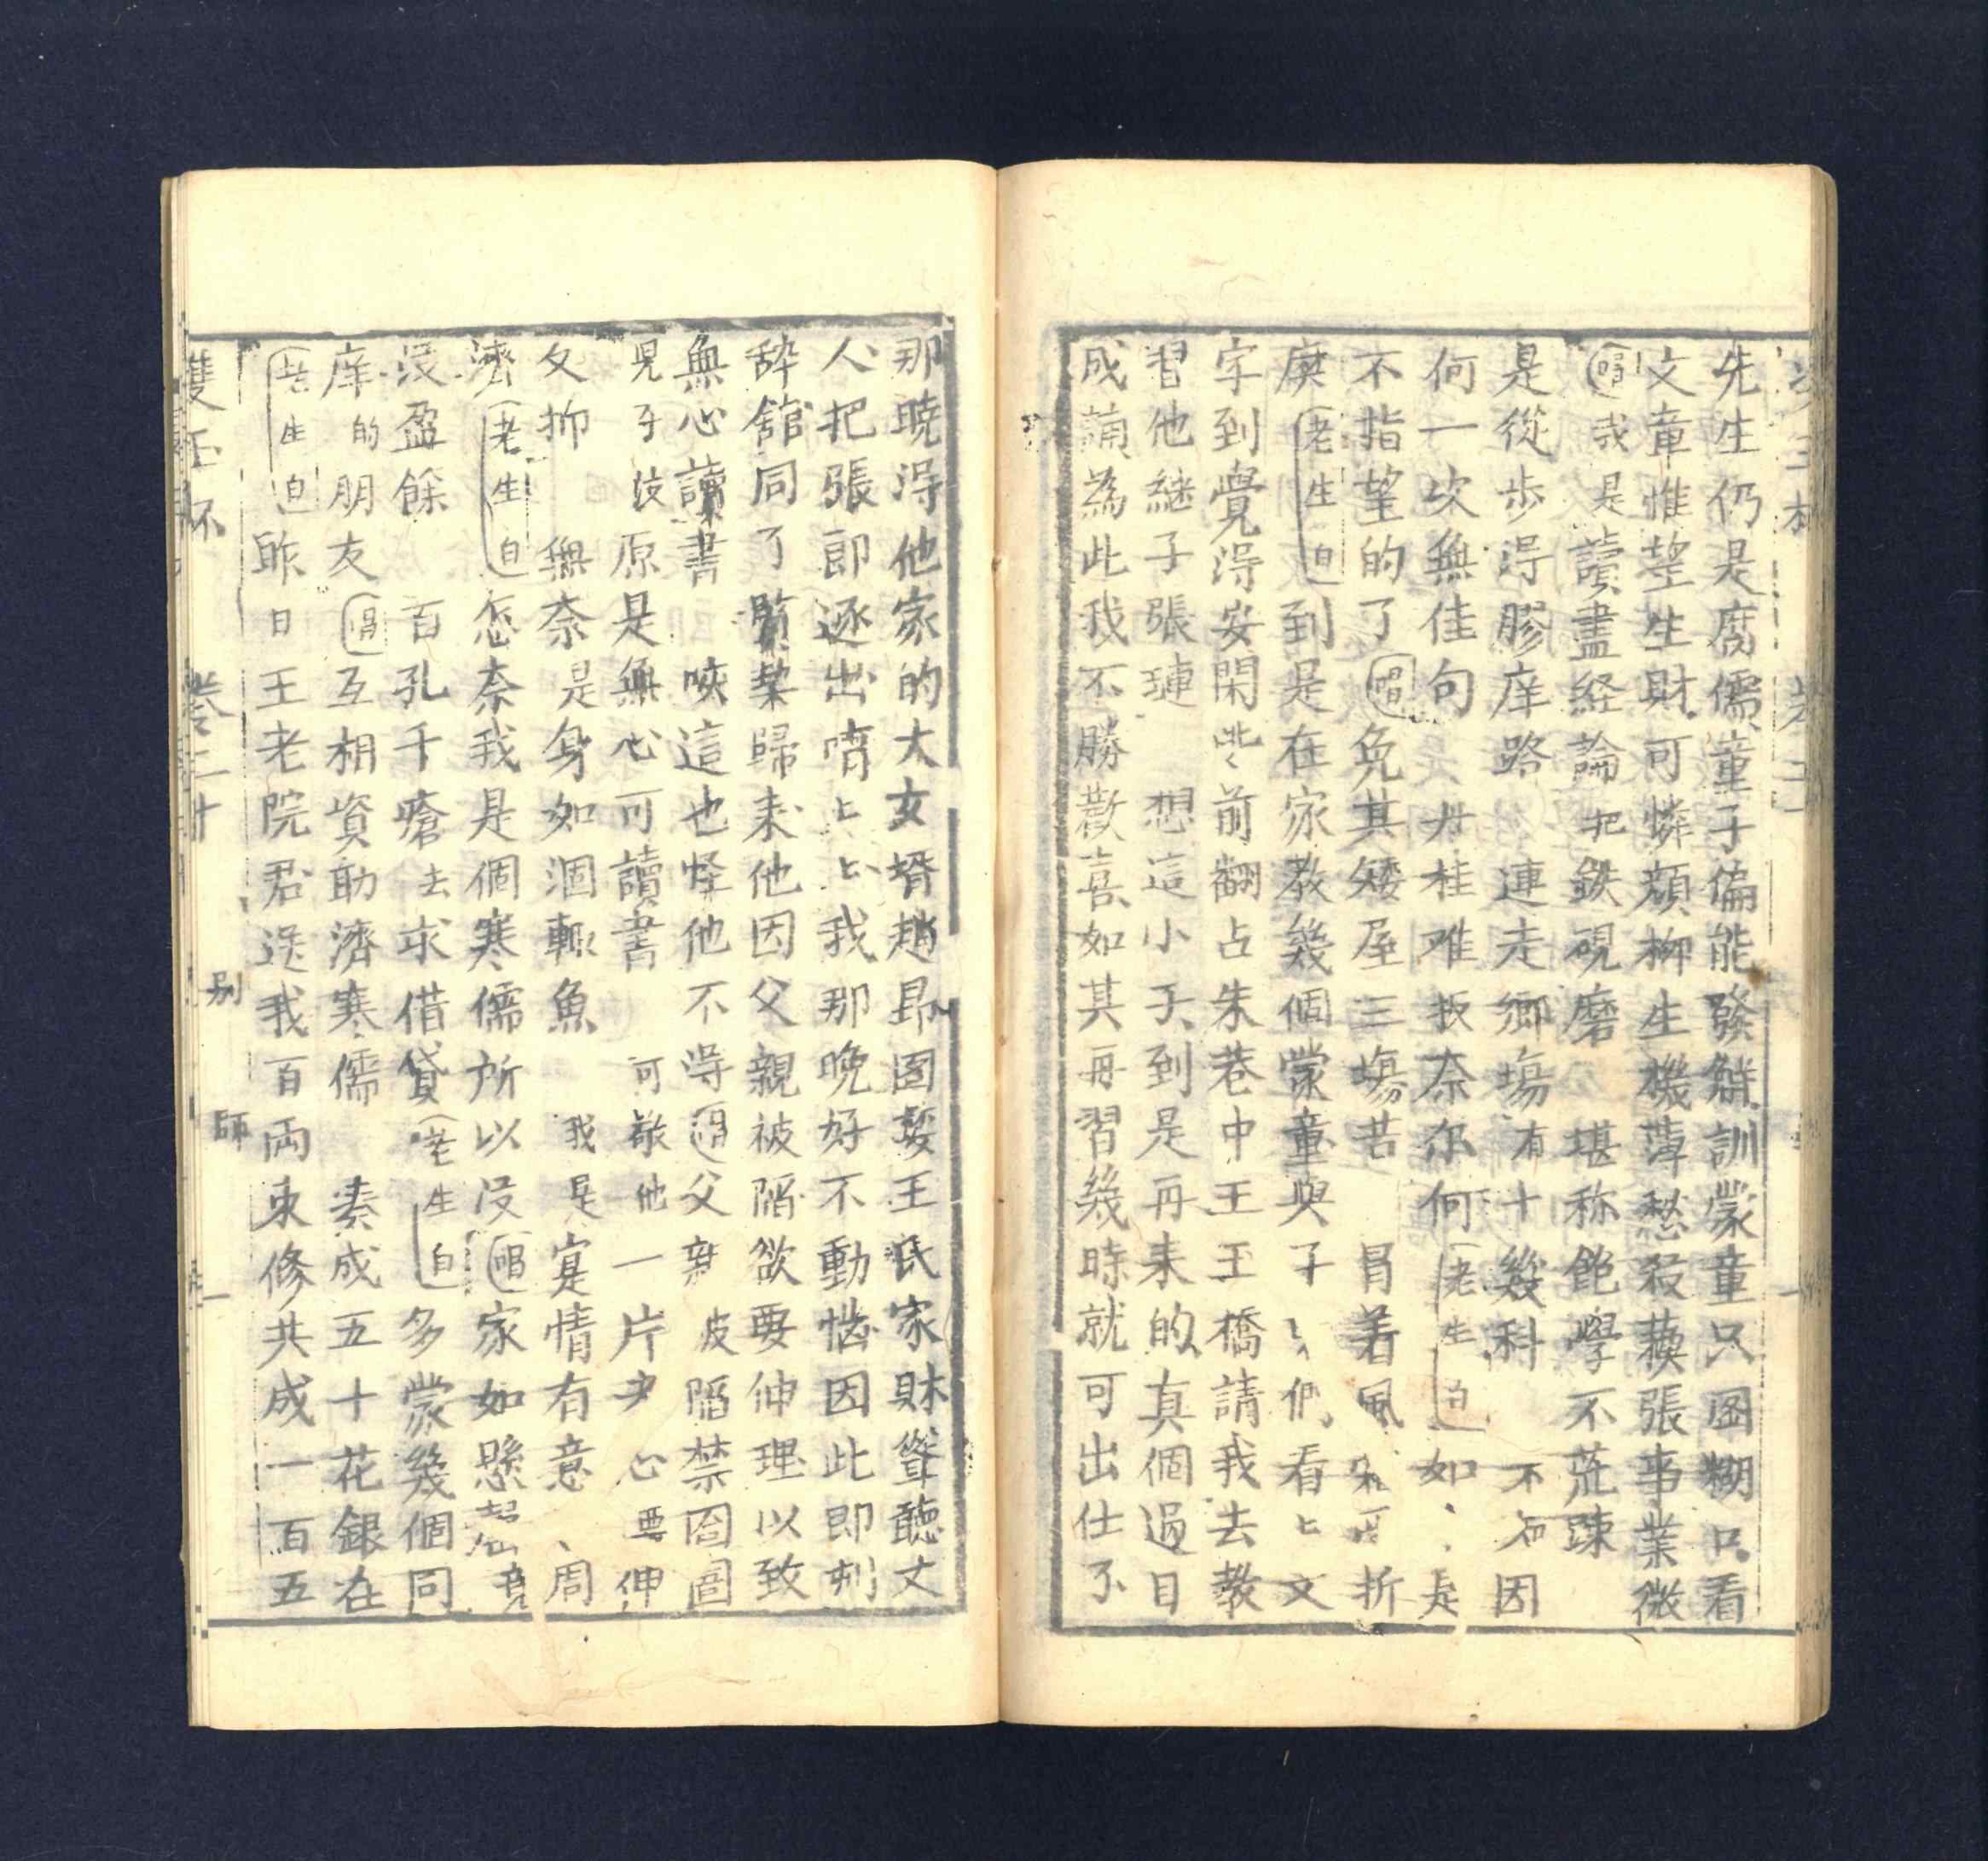 先生仍是腐儒童子偏能發觧訓蒙童只圖糊口看
文章惟望生財可憐顏柳生機薄愁殺蘓張事業微
唱我是讀盡経論把鉄硯磨堪称飽學不荒踈
是從步淂膠庠路連走鄉塲有十幾科不 因
何一次無佳句丹桂难扳奈尔何老生白如 是
不指望的了唱免其矮屋三塲苦冐着風 折
磨老生白到是在家教幾個蒙童與子 們看〻文
字到覺淂安閑些〻前翻占朱巷中王玉橋請我去教
習他継子張璉想這小子到是再来的真個過目
成誦為此我不勝歡喜如其再習幾時就可出仕了
那曉淂他家的大女壻趙昂圖娶王氏家財聳聽丈
人把張郎逐出啃〻〻我那晚好不動惱因此即刻
辞舘同了賢契歸来他因父親被陷欲要伸理以致
無心讀書咲這也怪他不淂唱父親被陷禁囹圄
児子 原是無心可讀書可敬他一片 心要伸
父 無奈是身如涸轍魚我是寔情有意周
濟老生白怎奈我是個寒儒所以没唱家如懸
没盈餘百孔千瘡去求借貸老生白多蒙幾個同
庠的朋友唱互相資助濟寒儒湊成五十花銀在
老生白昨日王老院君送我百両束修共成一百五
雙玉杯 卷二十 别師 一